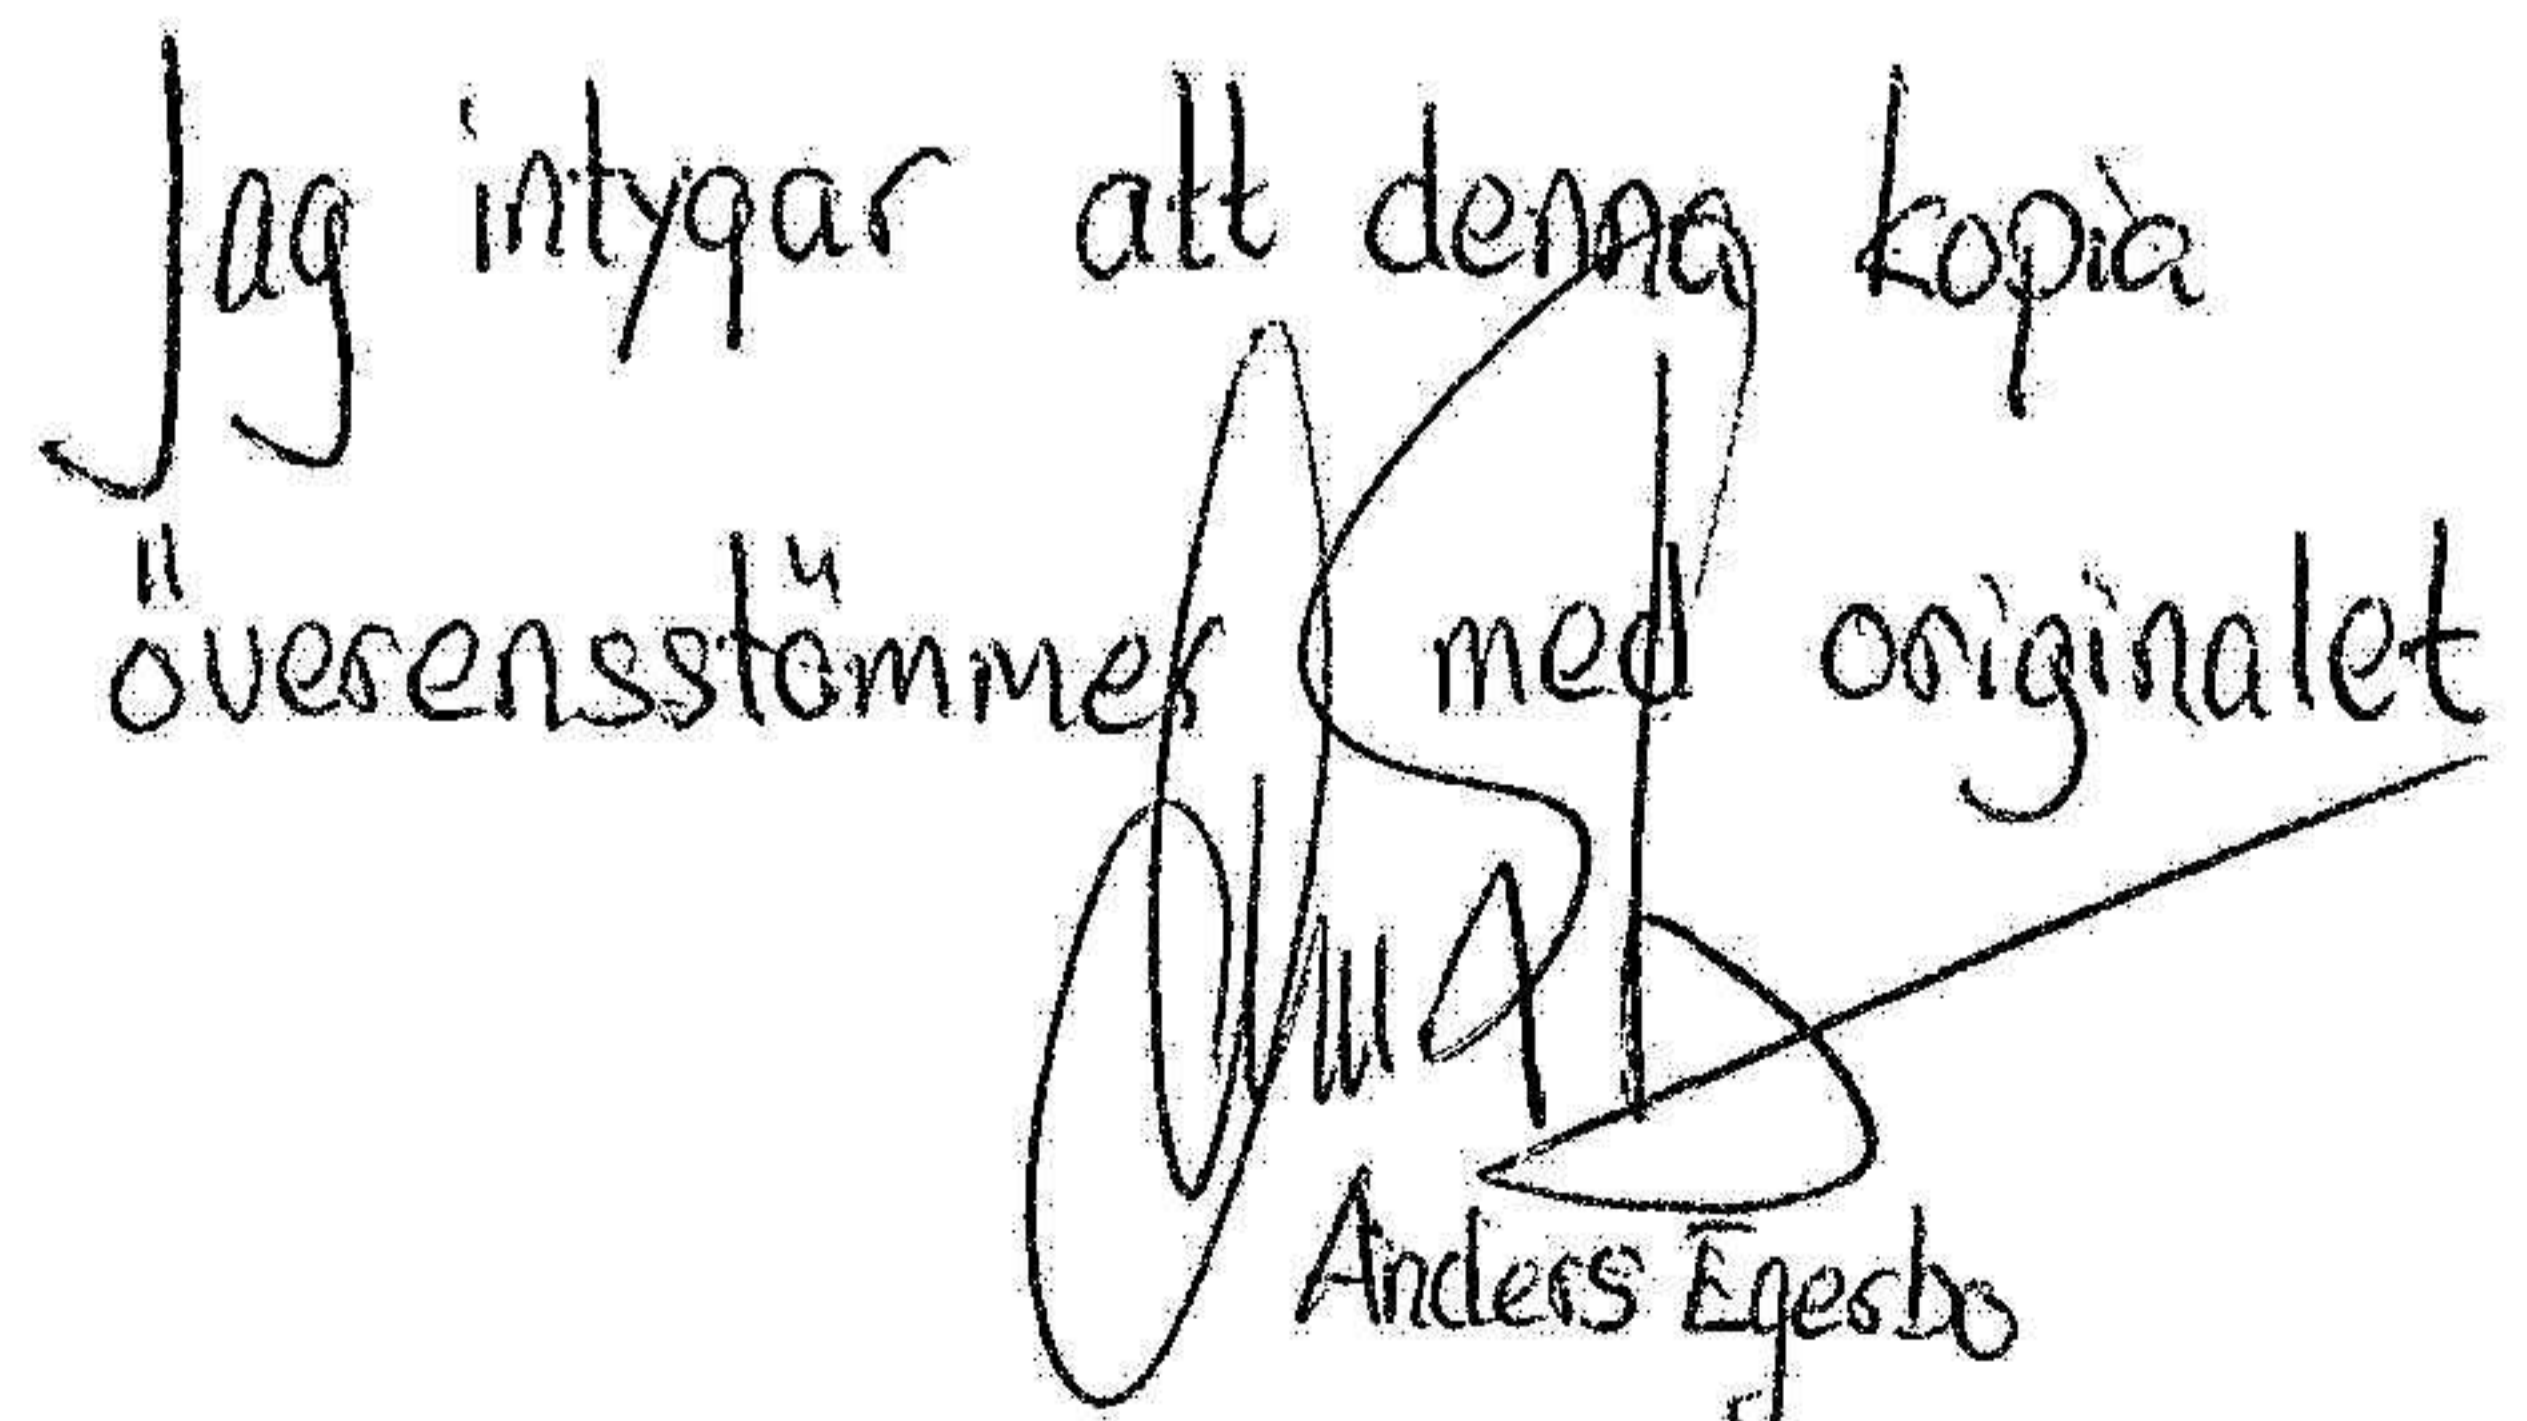 Jag intygar att denna kopia
överensstömmer med originalet
Anders Egerbo